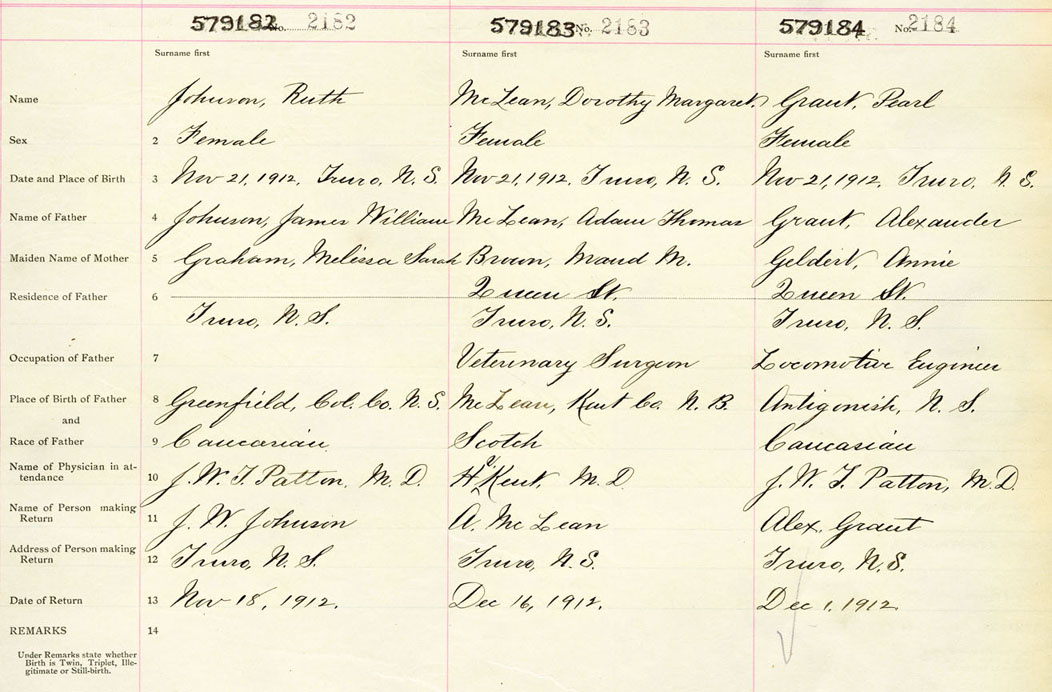 579182 No. 2182 579183 No. 2183 579184 No. 2184
Surname first Surname first Surname first
Name Johnson, Ruth McLean, Dorothy Margaret Grant, Pearl
Sex 2 Female Female Female
Date and Place of Birth 3 Nov 21, 1912, Truro, N. S. Nov 21, 1912, Truro, N. S. Nov 21, 1912, Truro, N. S.
Name of Father 4 Johnson, James William McLean, Adam Thomas Grant, Alexander
Maiden Name of Mother 5 Graham, Melissa Sarah Brown, Maud M. Geldert, Annie
Queen St. Queen St.
Residence of Father 6
Truro, N. S. Truro, N. S. Truro, N. S.
Occupation of Father 7 Veterinary Surgeon Locomotive Engineer
Place of Birth of Father 8 Greenfield, Col. Co. N. S. McLean, Kent Co. N. B. Antigonish, N. S.
and
Race of Father 9 Caucasian Scotch Caucasian
Name of Physician in at-
tendance 10 J. W. T. Patton, M. D. H. Kent, M. D. J. W. T. Patton, M. D.
Name of Person making
Return 11 J. W. Johnson A. McLean Alex. Grant
Address of Person making
Return 12 Truro, N. S. Truro, N. S. Truro, N. S.
Date of Return 13 Nov 18, 1912. Dec 16, 1912. Dec 1, 1912
REMARKS 14
Under Remarks state whether
Birth is Twin, Triplet, Ille-
gitimate or Still-birth.